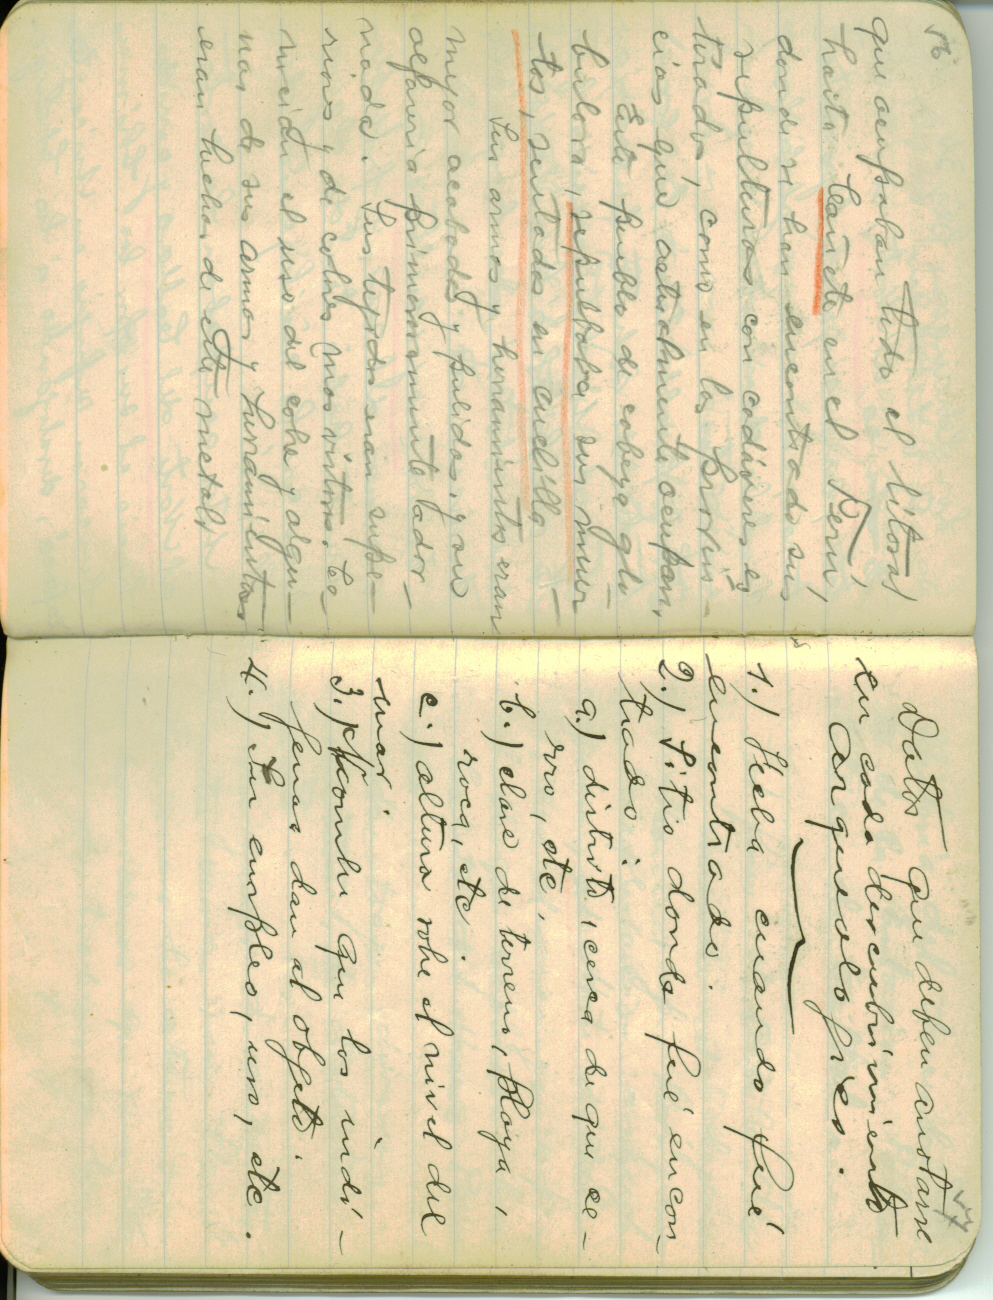 56
que ocupaban todo el litoral
hasta Cañete en el Perú,
donde se han encontrado sus
sepulturas con cadáveres es-
tirados, como en las provin-
cias que actualmente ocupan,
Este pueblo de cabeza glo-
bulosa, sepultaba sus muer-
tos, sentados en cuclilla
Sus armas y herramientas eran
mejor acabadas y pulidas, y su
alfarería primorosamente ador-
nada. Sus tejidos eran supe-
riores y de colores mas vistosos. Co-
nocían el uso del cobre y algu-
nas de sus armas y herramientas
eran hechas de este metal
57
Datos que deben anotarse
en cada descubrimiento
arqueolójico.
1.) Fecha cuando fué
encontrado.
2.) Sitio donde fué encon-
trado:
a.) distrito, cerca de que ce-
rro, etc.
b.) clase de terreno, playa,
roca, etc.
c.) altura sobre el nivel del
mar.
3.) Nombre que los indí-
jenas dan al objeto.
4.) Su empleo, uso, etc.